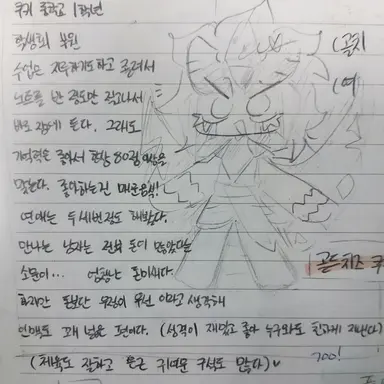 쿠키 중학교 1학년
학생회 부원
수업은 지루하기도하고 졸려서
노트를 반 정도만 적고나서
바로 잠에 든다. 그래도
기억력은 좋아서 항상 80점 이상을
맞는다. 좋아하는건 매운음식!
연애는 두세번정도 해봤다.
만나는 남자는 전부 돈이 많았다는
소문이... 엄청난 돈미새다.
하지만 돈보단 우정이 우선 이라고 생각해
인맥도 꽤 넓은 편이다. (성격이 재밌고 좋아 누구와도 친하게 지낸다)
(체육도 잘하고 은근 귀여운 구석도 많다)
(골치
(여
골드치즈 쿠